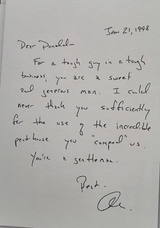 Jan 21, 1998
Dear Donald –
For a tough guy in a tough
business, you are a sweet
and generous man. I could
never thank you sufficiently
for the use of the incredible
penthouse you "comped" us.
You're a gentleman.
Best,